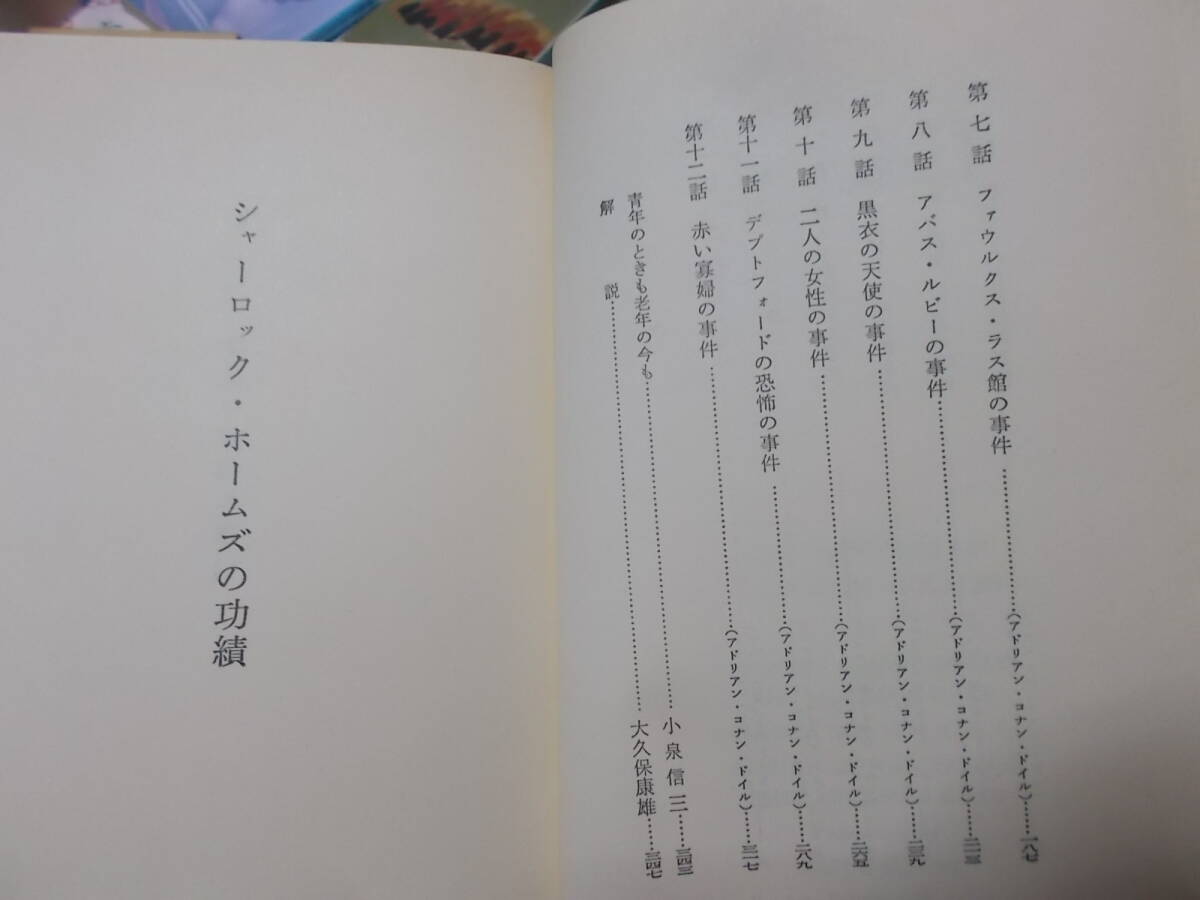 第七話　ファウルクス・ラス館の事件……………………（アドリアン・コナン・ドイル）……一八七
第八話　アバス・ルビーの事件……………………（アドリアン・コナン・ドイル）……二一三
第九話　黒衣の天使の事件……………………（アドリアン・コナン・ドイル）……二三九
第十話　二人の女性の事件……………………（アドリアン・コナン・ドイル）……二六五
第十一話　デプトフォードの恐怖の事件……………………（アドリアン・コナン・ドイル）……二八九
第十二話　赤い寡婦の事件……………………（アドリアン・コナン・ドイル）……三一七
青年のときも老年の今も……………………小泉信三……三四三
解説……………………大久保康雄……三四七
シャーロック・ホームズの功績